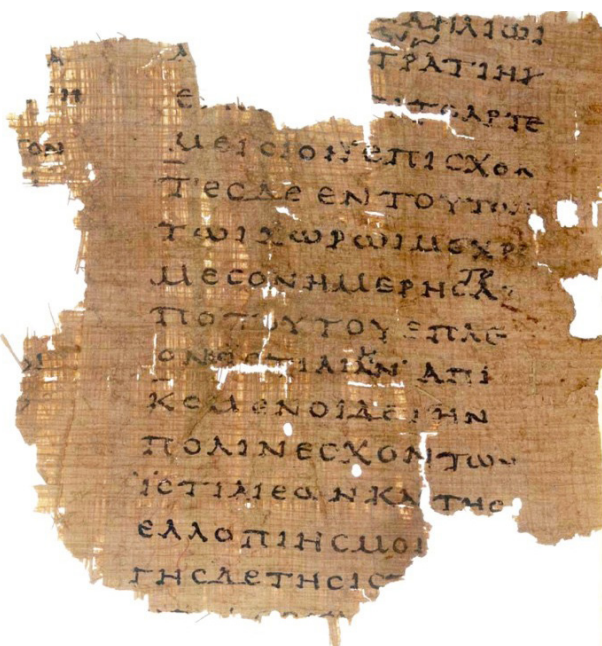 ΑΗΛΙΩΙ
ΤΡΑΤΙΗΝ
ΑΡΤΕ
ΜΕΙCΙΟΝ ΕΠΙCΧΟΝ
ΤΕCΔΕ ΕΝ ΤΟΥΤΩ
ΤΩΙ ΧΩΡΩΙ ΜΕΧΡ
ΜΕCΟΝ ΗΜΕΡΗC Α
ΠΟ ΤΟΥΤΟΥ ΕΠΛΕ
ΟΝ ΑΠΙ
ΚΟΜΕΝΟΙ ΔΕ ΤΗΝ
ΠΟΛΙΝ ΕCΧΟΝ ΤΩΝ
ΙCΤΙΑΙΕΩΝ ΚΑΙ ΤΗC
ΕΛΛΟΠΙΗC ΜΟΙ
ΓΗC ΔΕ ΤΗC ΙCΤ